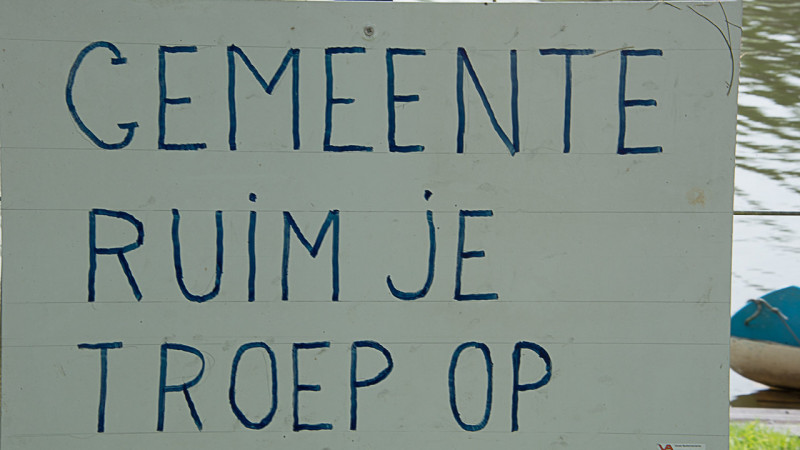 GEMEENTE
RUiM JE
TROEP OP